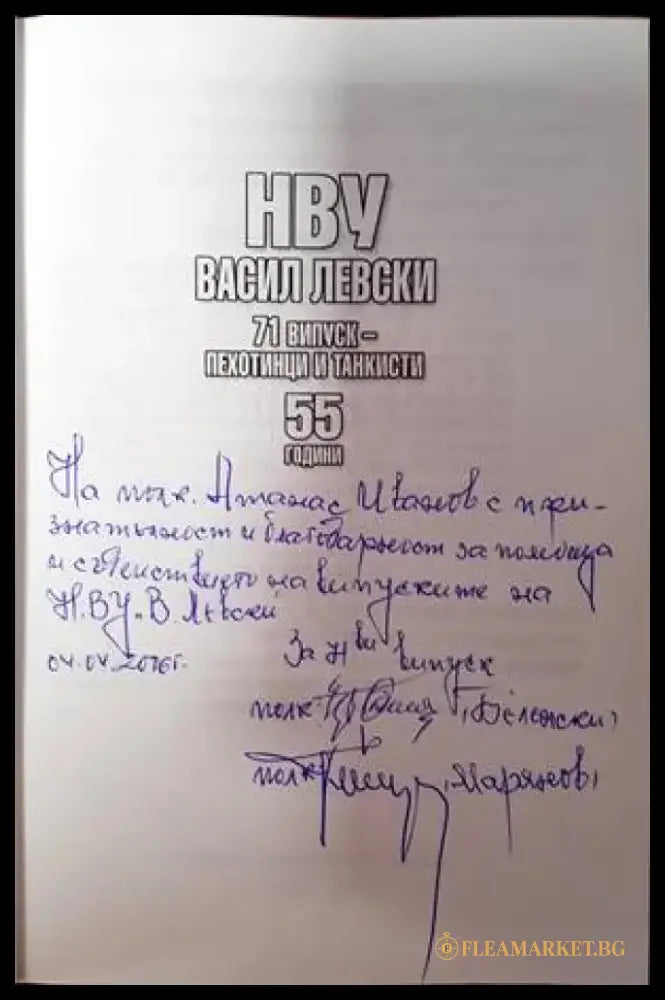 НВУ
ВАСИЛ ЛЕВСКИ
71 ВИПУСК –
ПЕХОТИНЦИ И ТАНКИСТИ
55
ГОДИНИ
На полк. Атанас Иванов с при-
знателност и благодарност за помощта
и съдействието на випуските на
НВУ „В. Левски"
04.04.2016г.
За 71ви випуск
полк. /Бележски/
полк. /Марянов/
FLEAMARKET.BG